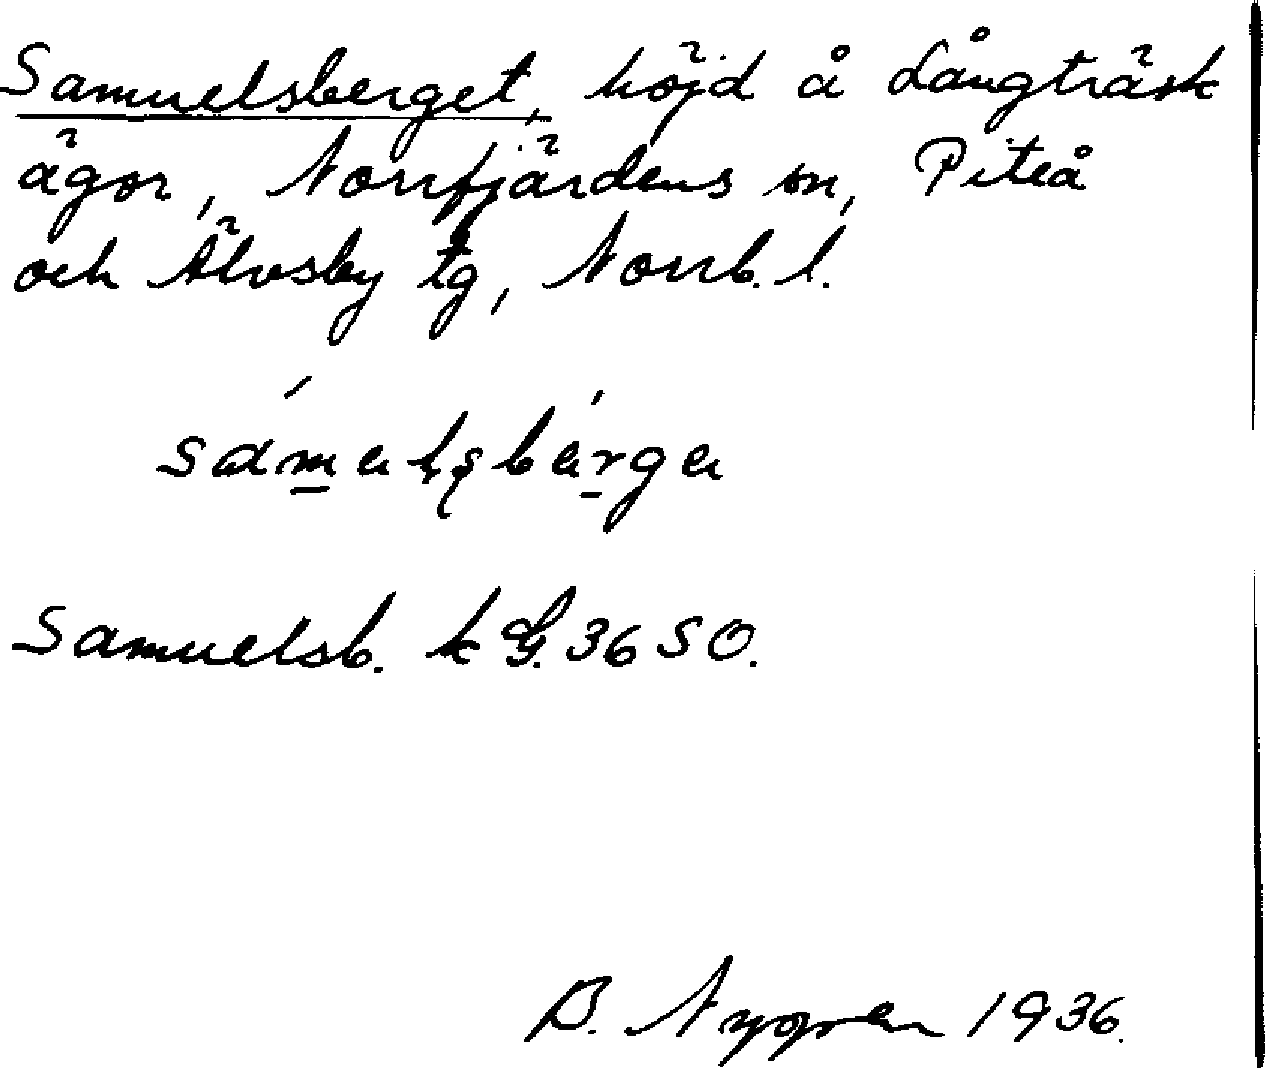 Samuelsberget, höjd å Långträsk
ägor, Norrfjärdens sn, Piteå
och Älvsby tg, Norrb. l.
Samuelsb. k G. 36 SO.
B. Nygren 1936.